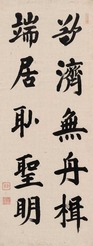 欲濟無舟楫
端居恥聖明